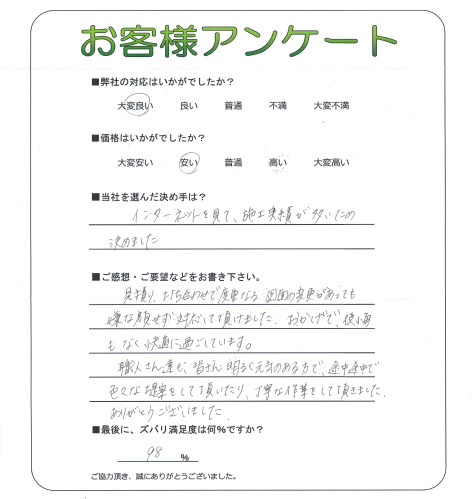 お客様アンケート
■弊社の対応はいかがでしたか？
大変良い 良い 普通 不満 大変不満
■価格はいかがでしたか？
大変安い 安い 普通 高い 大変高い
■当社を選んだ決め手は？
インターネットを見て、施工実績が多いため
決めました
■ご感想・ご要望などをお書き下さい。
見積り、打ち合わせで度重なる 図面の変更があっても
嫌な顔せず対応して頂けました。おかげで、後悔
もなく快適に過ごしています。
職人さん達も、皆さん明るく元気のある方で、途中途中で
色々なお提案をして頂いたり、丁寧な作業をして頂きました。
ありがとうございました。
■最後に、ズバリ満足度は何％ですか？
98 %
ご協力頂き、誠にありがとうございました。